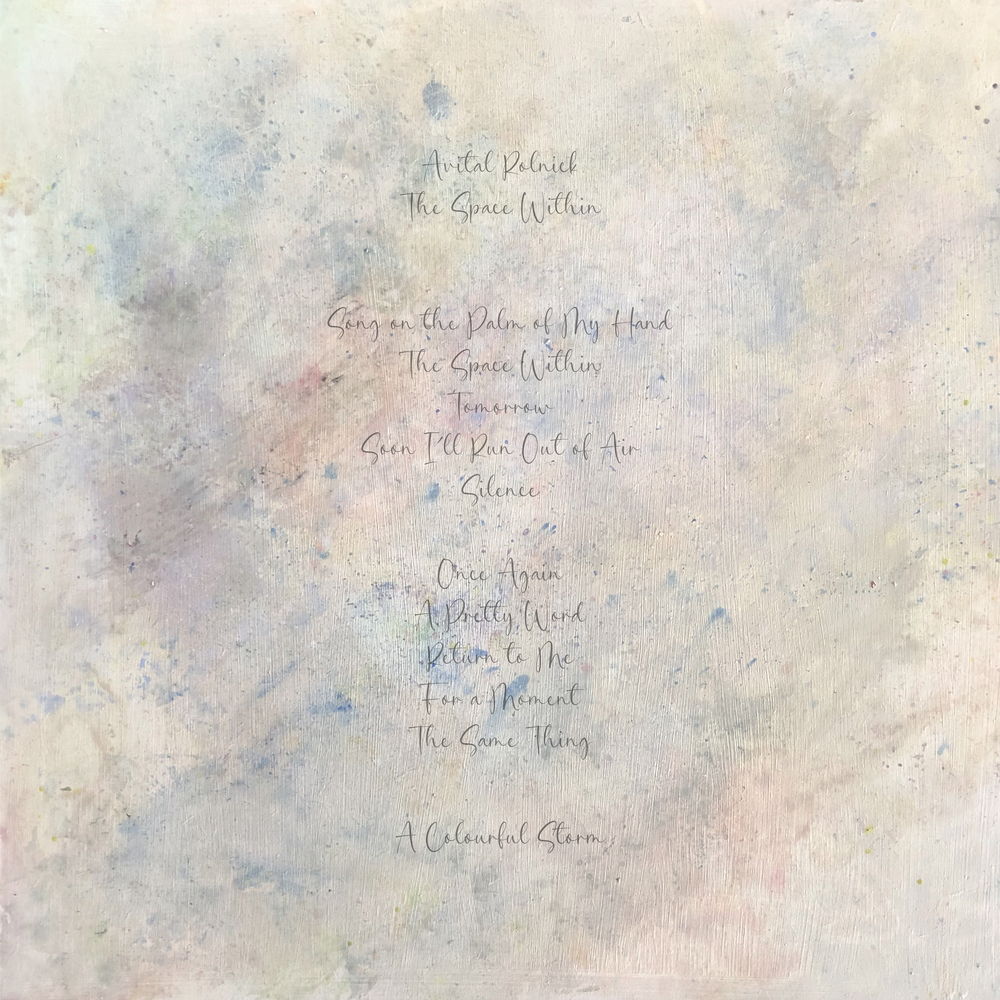 Avital Rolnick
The Space Within
Song on the Palm of My Hand
The Space Within
Tomorrow
Soon I'll Run Out of Air
Silence
Once Again
A Pretty Word
Return to Me
For a Moment
The Same Thing
A Colourful Storm